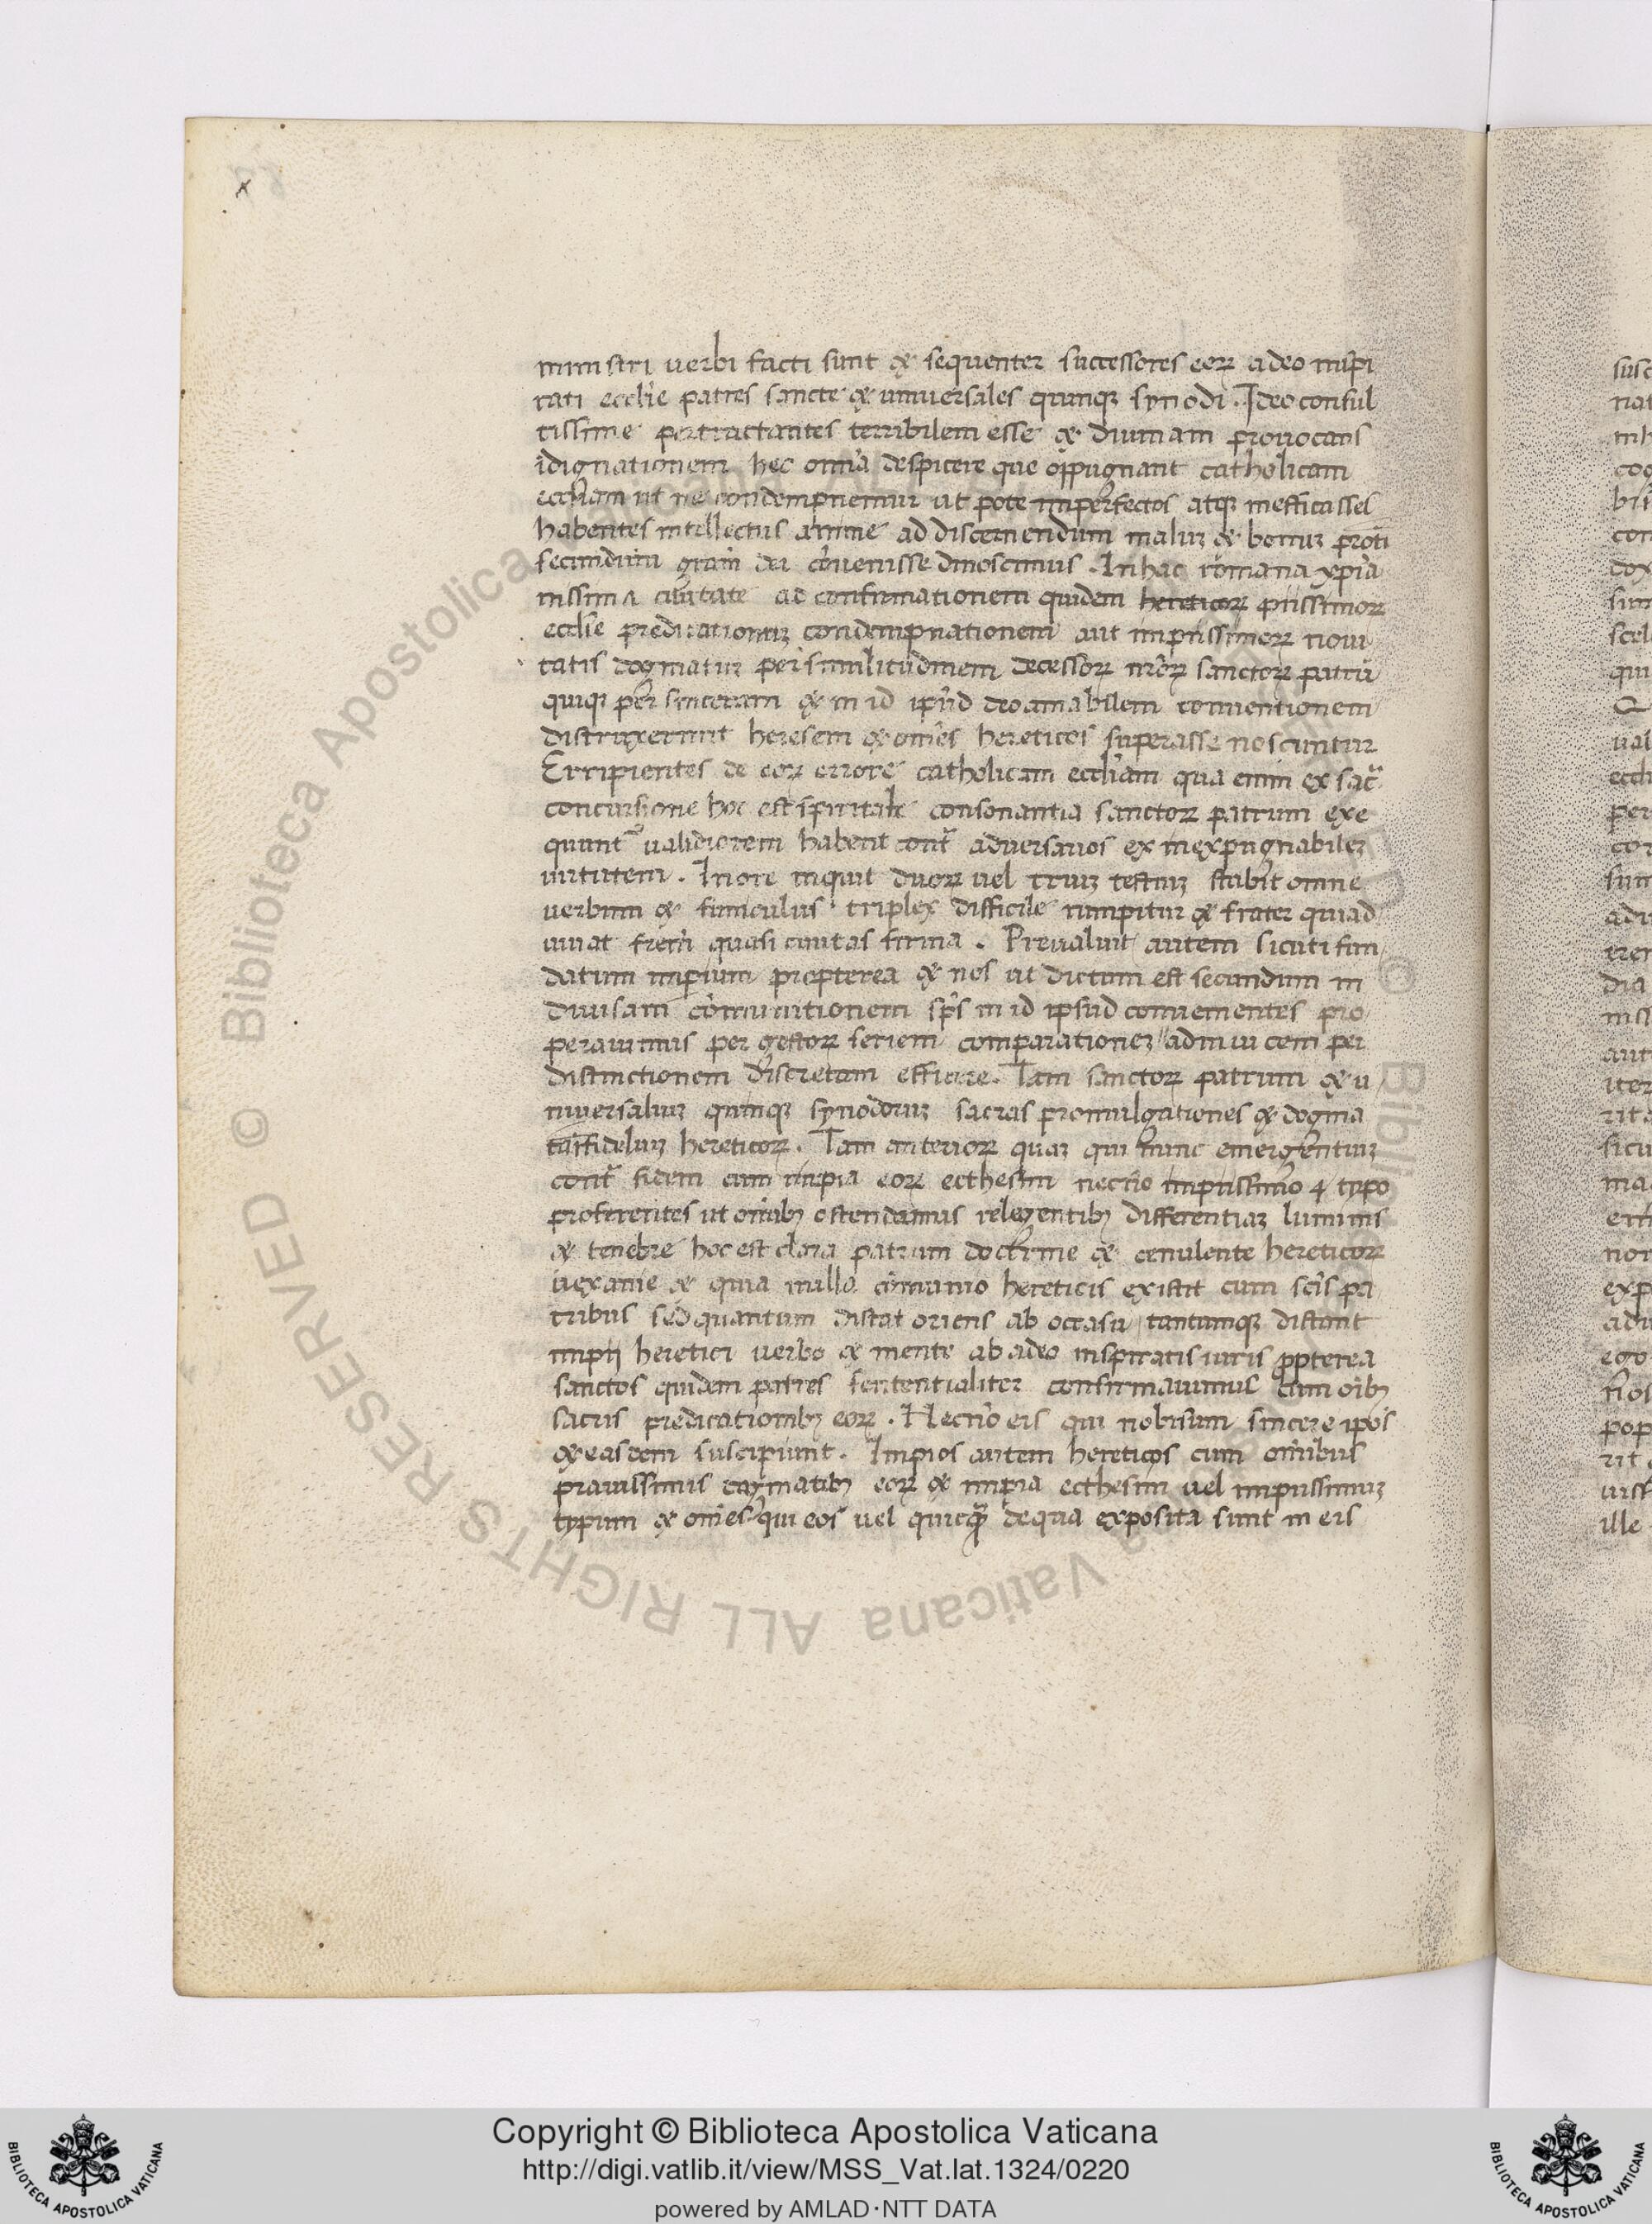 ministri uerbi facti sunt & sequenter successores eoꝝ a deo inspi
rati ecclie patres sancte & uniuersales quinqꝫ synodi. Ideo consul
tissime pertractantes terribilem esse & diuinam prouocans
idignationem hec omia despicere que oppugnant catholicam
eccliam ut ne condempnemur ut pote imperfectos atqꝫ inefficasses
habentes intellectus anime ad discernendum maluꝫ & bonuꝫ
secundum gram dei conuenisse dinoscimus. In hac romana xpia
nissima ciuitate ad confirmationem quidem hereticoꝝ piissimoꝝ
ecclie predicationuꝫ condempnationem aut impiissimoꝝ noui
tatis dogmatuꝫ per similitudinem decessoꝝ nroꝝ sanctoꝝ patrū
quiqꝫ per sinceram & in id ipsud deo amabilem conuentionem
distruxerunt heresem & omes hereticos superasse noscuntur
Erripientes de eoꝝ errore catholicam eccliam qua enim ex sac
concursione hoc est spiritale consonantia sanctoꝝ patrum exe
qunt ualidiorem habent cont aduersarios ex inexpugnabileꝫ
uirtutem. In ore inquit duoꝝ uel triuꝫ testiuꝫ stabit omne
uerbum & funiculus triplex difficile rumpitur & frater qui ad
iuuat frem quasi ciuitas firma. Preualuit autem sicuti fun
datum impium propterea & nos ut dictum est secundum in
diuisam comunitionem sps in id ipsud conuenientes pro
perauimus per gestoꝝ seriem comparationeꝫ adinuicem per
distinctionem discretam efficere. Tam sanctoꝝ patrum & u
niuersaliuꝫ quinqꝫ synodoruꝫ sacras promulgationes & dogma
infideliuꝫ hereticoꝝ. Tam anterioꝝ quaꝫ qui nunc emergentiuꝫ
cont fidem cum impia eoꝝ ecthesin necno impiissimo typo
proferentes ut omibꝫ ostendamus relegentibꝫ differentiaꝫ luminis
& tenebre hoc est clara patrum doctrine & cenulente hereticoꝝ
uexanie & quia nulla comunio hereticis existit cum scis pa
tribus sed quantum distat oriens ab occasu tantumqꝫ distant
impii heretici uerbo & mente ab a deo inspiratis uiris ppterea
sanctos quidem patres sententialiter confirmauimus cum oibꝫ
sacris predicationibꝫ eoꝝ. Necno eis qui nobisum sincere ipos
& easdem suscipiunt. Impios autem hereticos cum omibus
prauissimis dogmatibꝫ eoꝝ & impia ecthesim uel impiissimuꝫ
typum & omes qui eos uel de qua exposita sunt in eis
Copyright © Biblioteca Apostolica Vaticana
http://digi.vatlib.it/view/MSS_Vat.lat.1324/0220
powered by AMLAD·NTT DATA
BIBLIOTECA APOSTOLICA VATICANA
BIBLIOTECA APOSTOLICA VATICANA